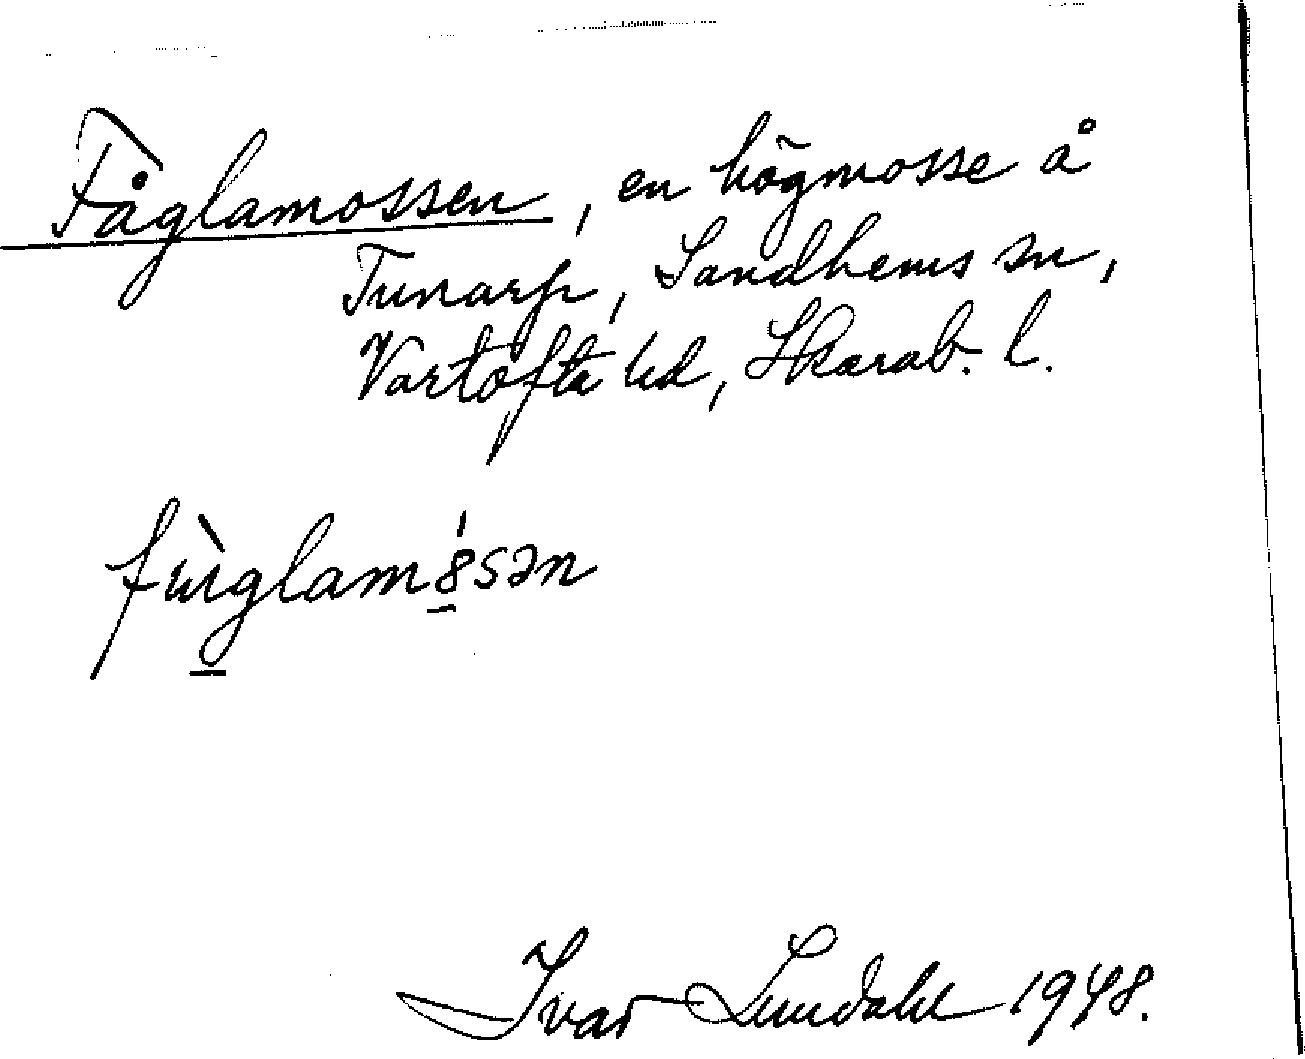 Fåglamossen, en högmosse å
Tunarp, Sandhems sn,
Vartofta hd, Skarab. l.
Ivar Lundahl 1948.